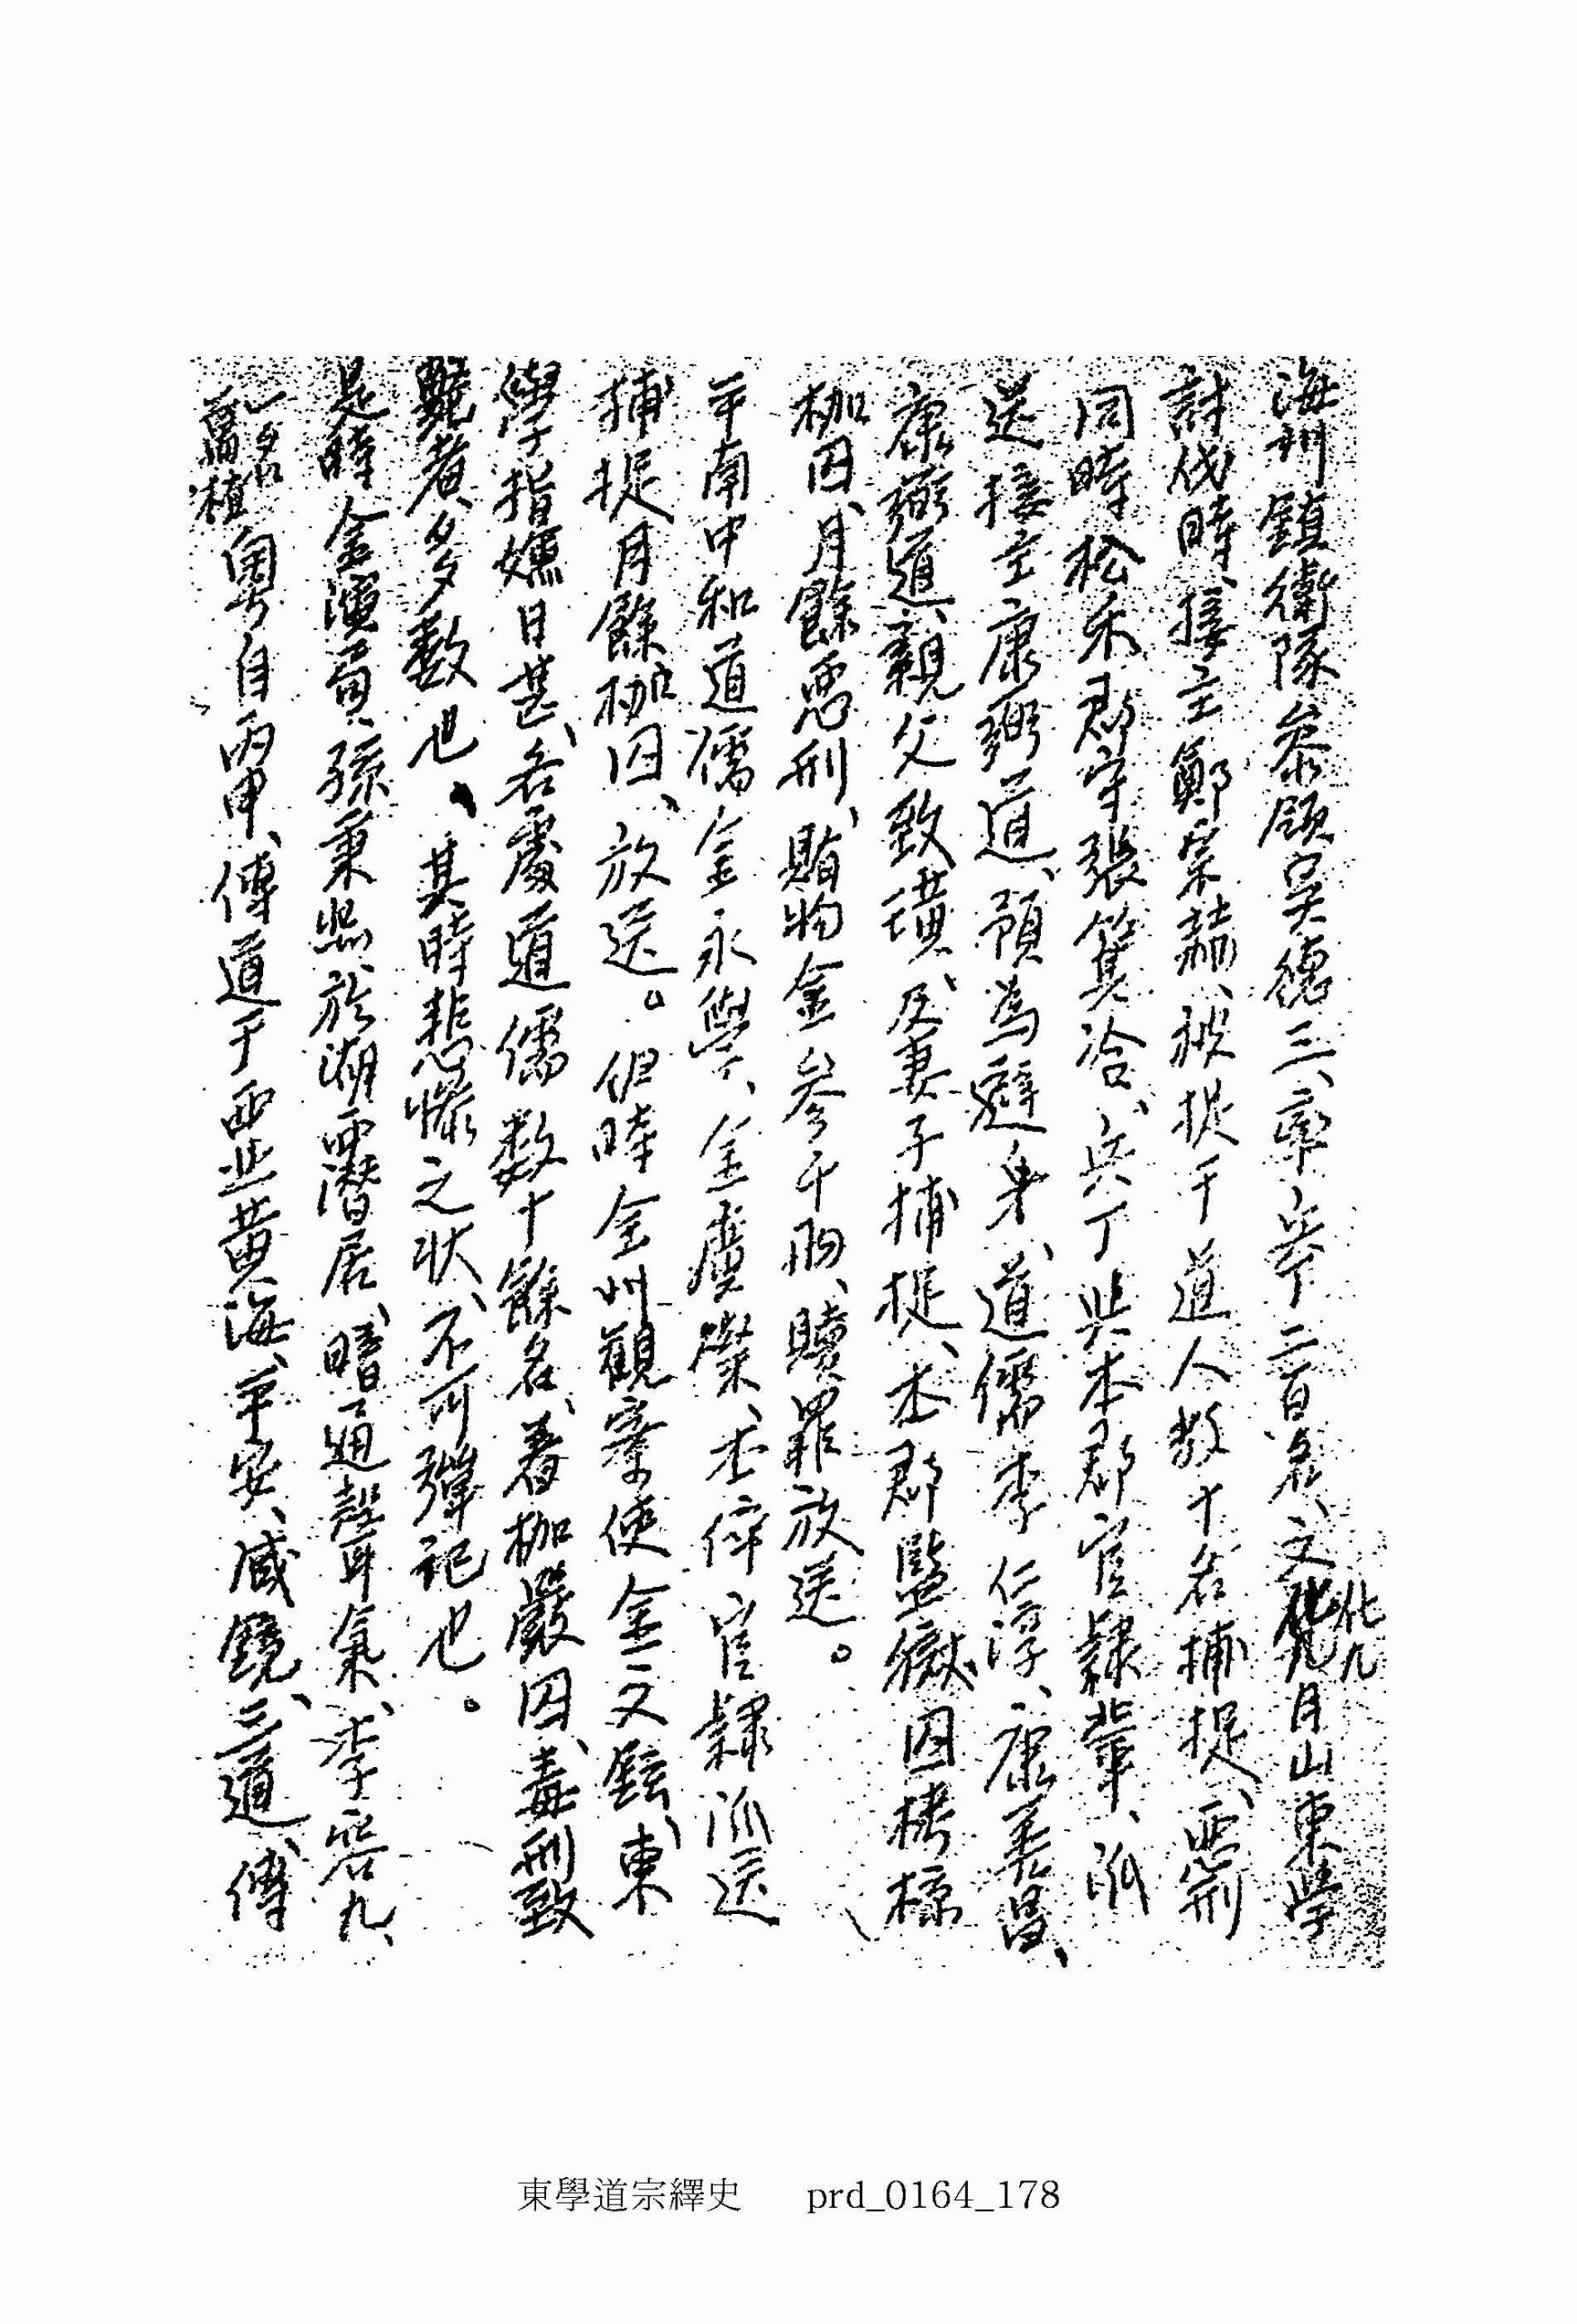 海州鎮衛隊參領吳德三、率兵丁二百名、文化九月山東學
化九
討伐時、接主鄭宗赫、被捉于道人数十名捕捉、惡刑
同時松禾郡守張箕洽、兵丁與本郡官隷輩、派
送接主康弼道、預為避身、道儒李仁淳、康美昌、
康弼道、親父致璜、及妻子捕捉、本郡監獄囚栲椋
枷囚、月餘惡刑、賄物金參千兩、贖罪放送。
平南中和道儒金永學、金廣燦、本倅官隷派送
捕捉月餘枷囚、放送。但時全州觀察使金文鉉、東
學指嫌日甚、各處道儒数十餘名、着枷嚴囚、毒刑致
斃者、多数也、其時悲慘之状、不可殫記也。
是時金演局、孫秉熙於湖西潛居、暗通聲氣、李容九、
一名萬植
粵自丙申、傳道于西北黄海、平安、咸鏡、三道、傳
東學道宗繹史 prd_0164_178